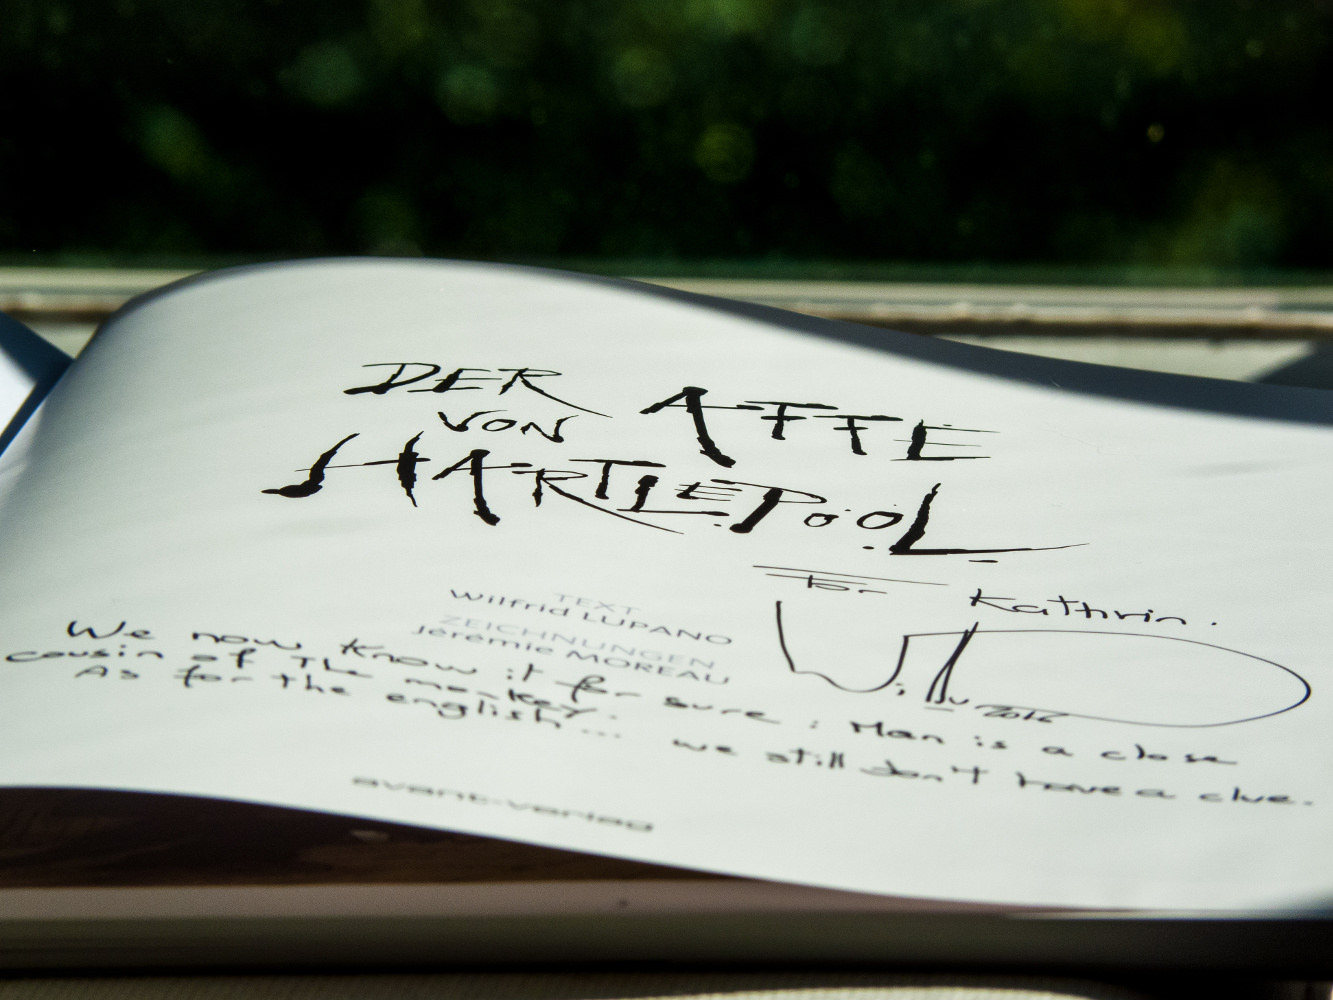 DER AFFE
VON
HARTLEPOOL
For Kathrin.
TEXT
Wilfrid LUPANO
ZEICHNUNGEN
Jérémie MOREAU
2016
We now know it for sure : Man is a close
cousin of the monkey.
As for the english... we still don't have a clue.
avant-verlag